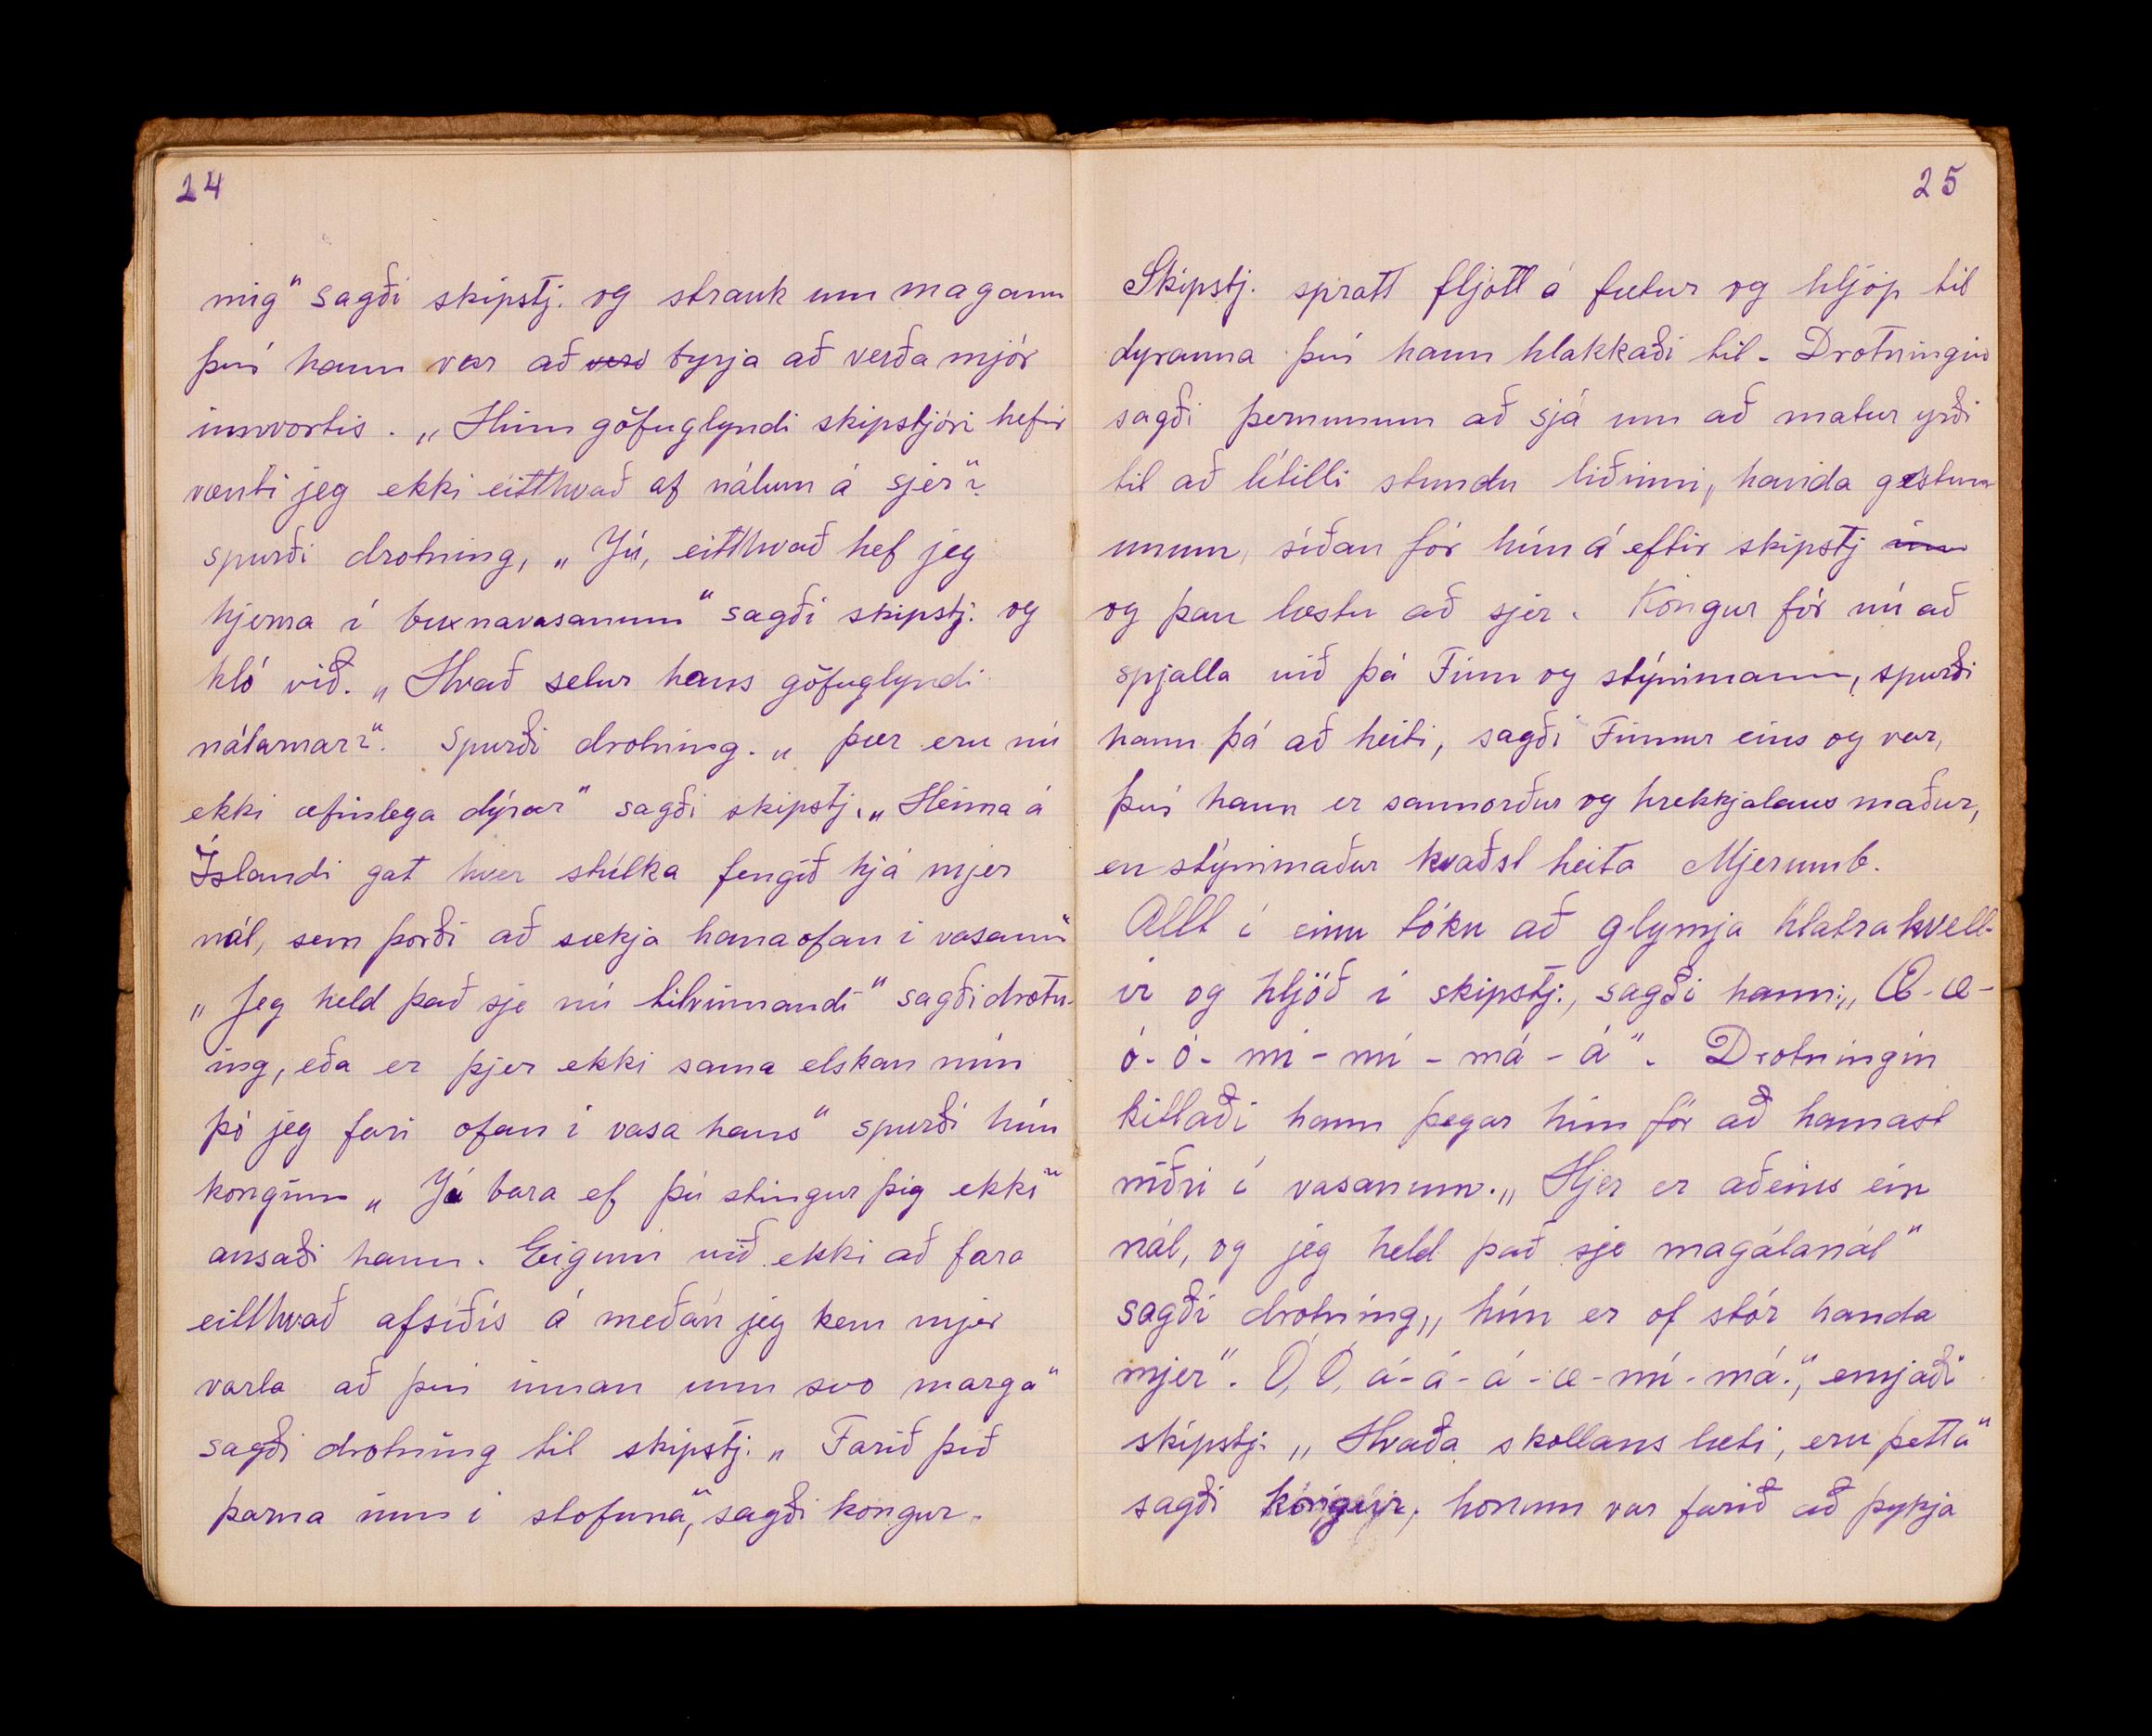 24
mig" sagði skipstj. og strauk um magann
því hann var að byrja að verða mjór
innvortis. „Hinn göfuglyndi skipstjóri hefir
vænti jeg ekki eitthvað af nálum á sjer"?
spurði drotning, „Jú, eitthvað hef jeg
hjerna í buxnavasanum" sagði skipstj. og
hló við. „Hvað selur hans göfuglyndi
nálarnar?". Spurði drotning. „Þær eru nú
ekki æfinlega dýrar" sagði skipstj. „Heima á
Íslandi gat hver stúlka fengið hjá mjer
nál, sem þorði að sækja hana ofan í vasann"
„Jeg held það sje nú tilvinnandi" sagði drotn-
ing, eða er þjer ekki sama elskan mín
þó jeg fari ofan í vasa hans" spurði hún
konginn „Jú bara ef þú stingur þig ekki"
ansaði hann. Eigum við ekki að fara
eitthvað afsíðis á meðan jeg kem mjer
varla að því innan um svo marga"
sagði drotning til skipstj. „Farið þið
þarna inn í stofuna", sagði kongur.
25
Skipstj. spratt fljótt á fætur og hljóp til
dyranna því hann hlakkaði til. Drotningin
sagði þernunum að sjá um að matur yrði
til að lítilli stundu liðinni, handa gestun-
unum, síðan fór hún á eftir skipstj inn
og þau læstu að sjer. Kongur fór nú að
spjalla við þá Finn og stýrimann, spurði
hann þá að heiti, sagði Finnur eins og var,
því hann er sannorður og hrekkjalaus maður,
en stýrimaður kvaðst heita Mjerumb.
Allt í einu tóku að glymja hlatrakvell-
ir og hljóð í skipstj., sagði hann: „Æ-æ-
ó-ó-mi-mí-má-á". Drotningin
kitlaði hann þegar hún fór að hamast
niðri í vasanum. „Hjer er aðeins ein
nál, og jeg held það sje magálanál"
sagði drotning, „hún er of stór handa
mjer". Ó, Ó, á-á-á-æ-mí-má.", emjaði
skipstj. „Hvaða skollans læti, eru þetta"
sagði kóngur, honum var farið að þykja